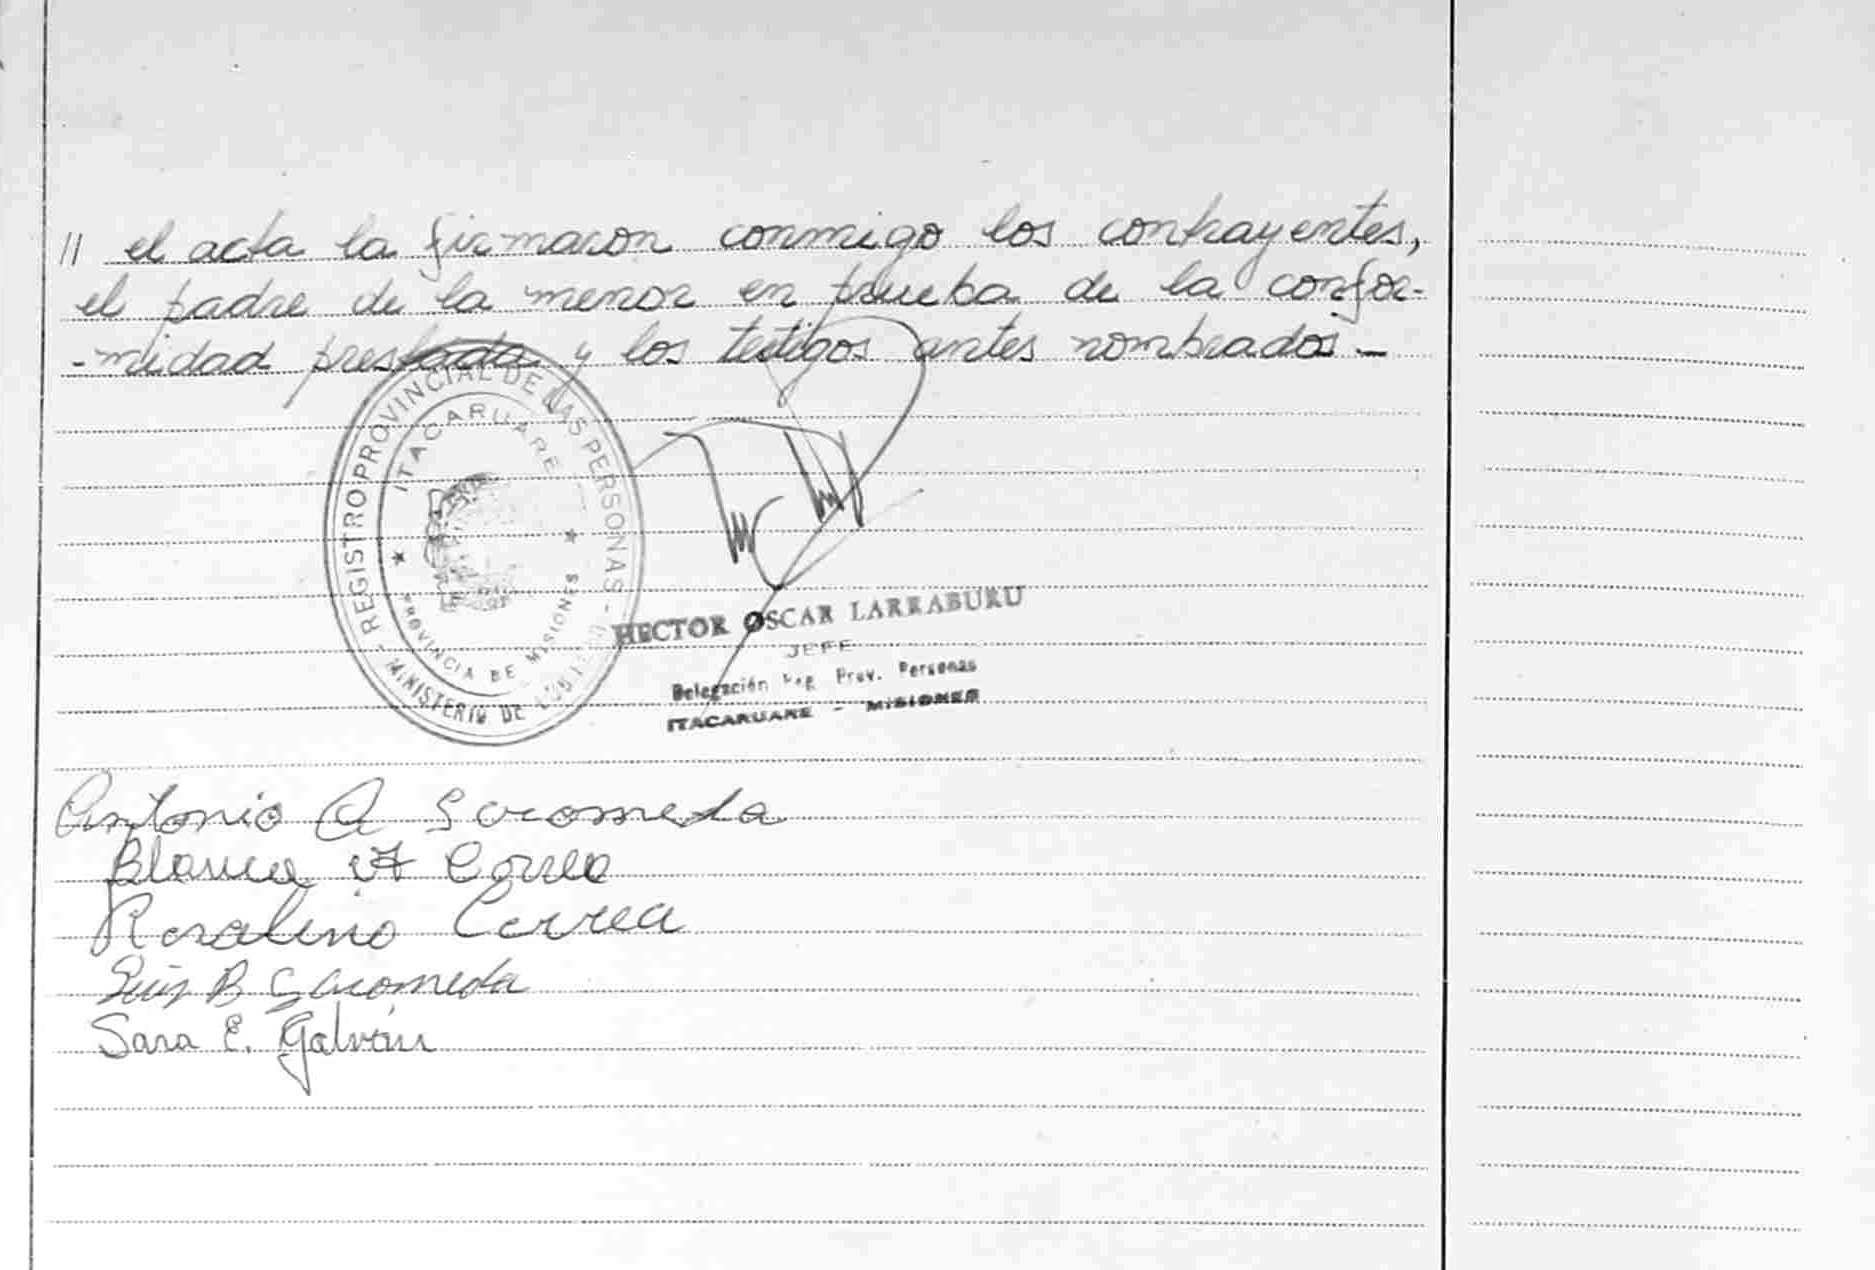 // el acta la firmaron conmigo los contrayentes,
el padre de la menor en prueba de la confor-
-midad prestada y los testigos antes nombrados -
REGISTRO PROVINCIAL DE LAS PERSONAS -
MINISTERIO DE
ITACARUARE
PROVINCIA DE MISIONES
HECTOR OSCAR LARRABURU
JEFE
Delegación Reg. Prov. Personas
ITACARUARE - MISIONES
Antonio A
Blanca Correa
Rosalino Correa
Luis B
Sara E. Galván